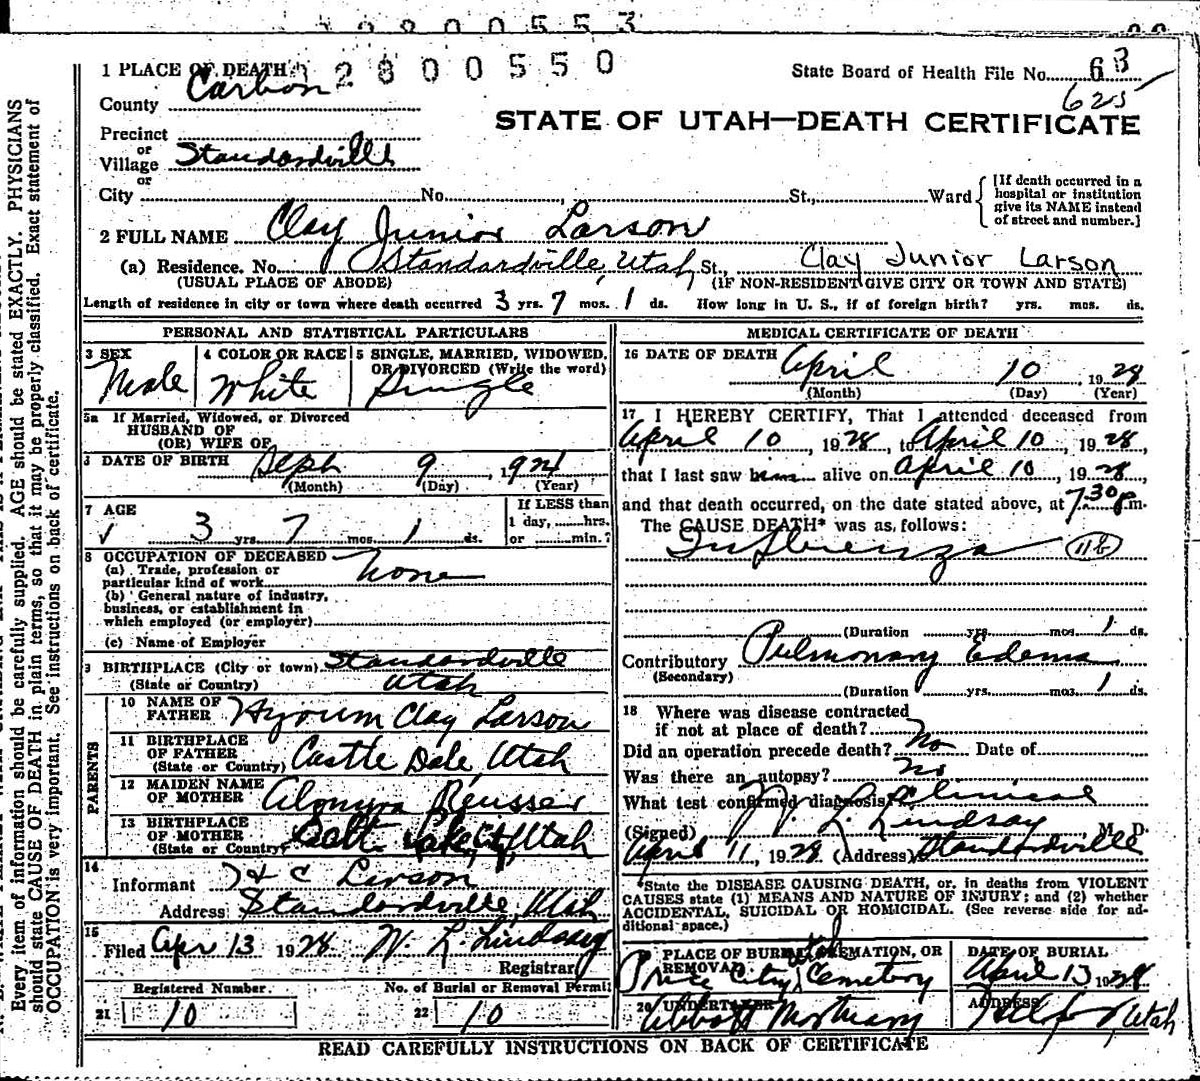 2800550
1 PLACE OF DEATH
State Board of Health File No. 63
625
County Carbon
STATE OF UTAH—DEATH CERTIFICATE
Precinct
or
Village Standardville
or
City No. St., Ward
[If death occurred in a hospital or institution give its NAME instead of street and number.]
2 FULL NAME Clay Junior Larson
(a) Residence. No. Standardville, Utah St., Clay Junior Larson
(USUAL PLACE OF ABODE) (IF NON-RESIDENT GIVE CITY OR TOWN AND STATE)
Length of residence in city or town where death occurred 3 yrs. 7 mos. 1 ds. How long in U. S., if of foreign birth? yrs. mos. ds.
PERSONAL AND STATISTICAL PARTICULARS
3 SEX
Male
4 COLOR OR RACE
White
5 SINGLE, MARRIED, WIDOWED,
OR DIVORCED (Write the word)
Single
5a If Married, Widowed, or Divorced
HUSBAND OF
(OR) WIFE OF
DATE OF BIRTH Sept 9, 1924
(Month) (Day) (Year)
7 AGE
3 yrs. 7 mos. 1 ds.
If LESS than
1 day, hrs.
or min.?
8 OCCUPATION OF DECEASED
(a) Trade, profession or
particular kind of work None
(b) General nature of industry,
business, or establishment in
which employed (or employer)
(c) Name of Employer
BIRTHPLACE (City or town) Standardville
(State or Country) Utah
PARENTS
10 NAME OF
FATHER Hyrum Clay Larson
11 BIRTHPLACE
OF FATHER
(State or Country) Castle Dale, Utah
12 MAIDEN NAME
OF MOTHER Reusser
13 BIRTHPLACE
OF MOTHER
(State or Country) Salt Lake City, Utah
14
Informant H C Larson
Address Standardville Utah
15
Filed Apr 13 1928 W. L. Lindsay
Registrar
Registered Number. No. of Burial or Removal Permit
21 10 22 10
MEDICAL CERTIFICATE OF DEATH
16 DATE OF DEATH April 10, 1928
(Month) (Day) (Year)
17 I HEREBY CERTIFY, That I attended deceased from
April 10, 1928, to April 10, 1928,
that I last saw him alive on April 10, 1928,
and that death occurred, on the date stated above, at 7:30 p.m.
The CAUSE DEATH* was as follows:
Influenza 11b
(Duration yrs. mos. 1 ds.
Contributory Pulmonary Edema
(Secondary)
(Duration yrs. mos. 1 ds.
18 Where was disease contracted
if not at place of death?
Did an operation precede death? No Date of
Was there an autopsy? No
What test confirmed diagnosis? Clinical
(Signed) W. L. Lindsay, M. D.
April 11, 1928 (Address) Standardville
*State the DISEASE CAUSING DEATH, or, in deaths from VIOLENT
CAUSES state (1) MEANS AND NATURE OF INJURY; and (2) whether
ACCIDENTAL, SUICIDAL OR HOMICIDAL. (See reverse side for ad-
ditional space.)
PLACE OF BURIAL, CREMATION, OR
REMOVAL
Price City Cemetery Utah
DATE OF BURIAL
April 13 1928
20 UNDERTAKER
Mortuary
ADDRESS
Utah
READ CAREFULLY INSTRUCTIONS ON BACK OF CERTIFICATE
Every item of information should be carefully supplied. AGE should be stated EXACTLY. PHYSICIANS
should state CAUSE OF DEATH in plain terms, so that it may be properly classified. Exact statement of
OCCUPATION is very important. See instructions on back of certificate.